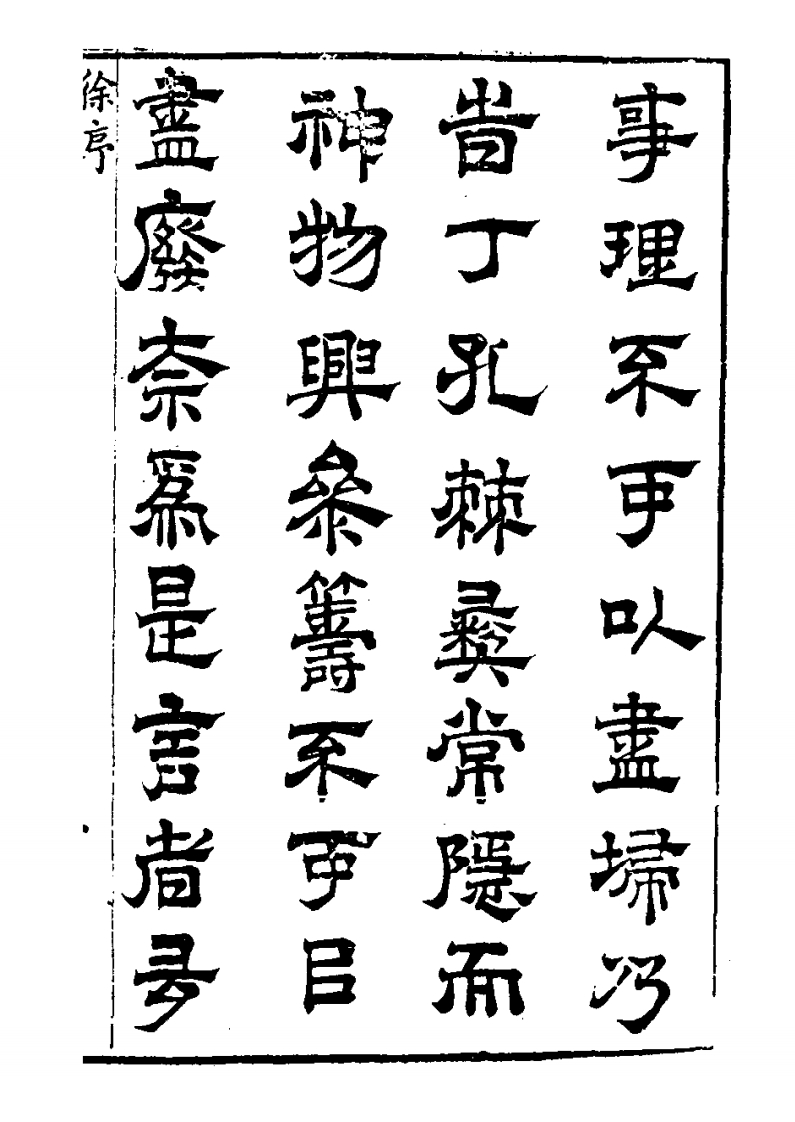 事理不可以盡埽乃
旹丁孔棘彝常隱而
神物興參籌不可㠯
盡廢奈爲是言者
徐序